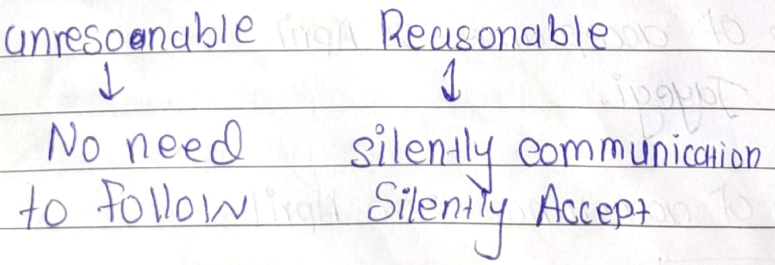 unresoanable Reasonable
↓ ↓
No need silently communication
to follow Silently Accept